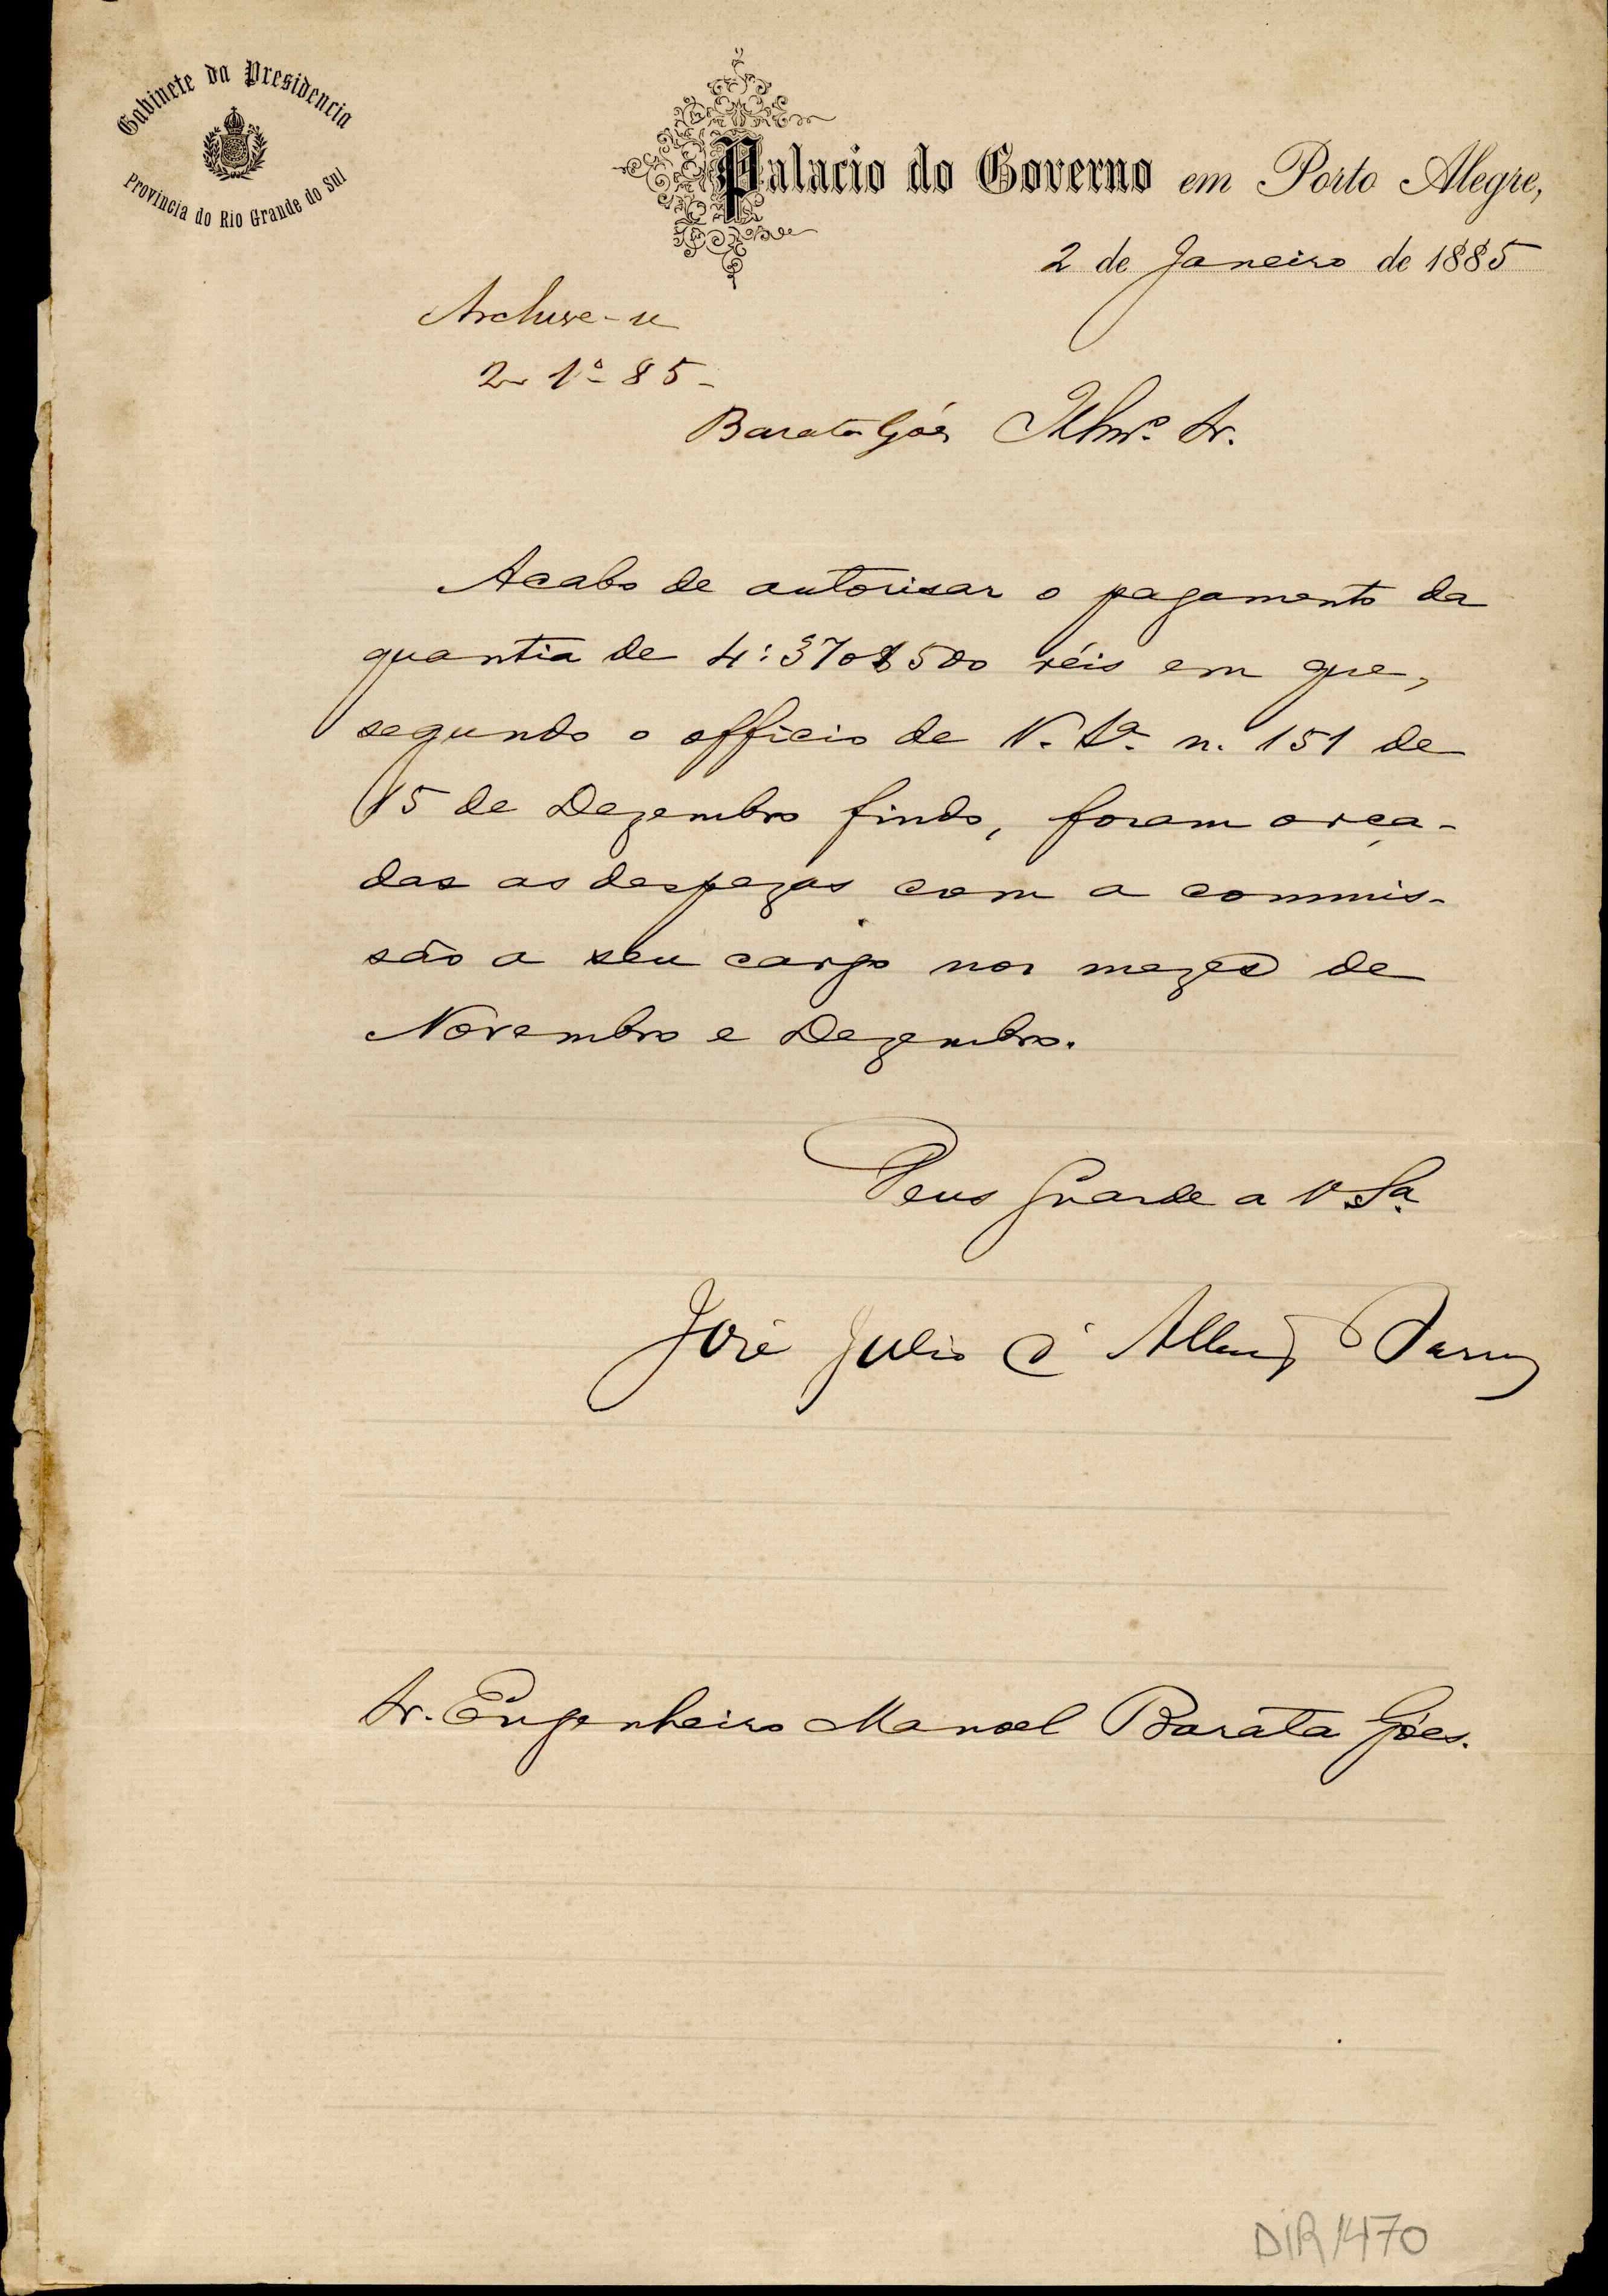 Gabinete da Presidencia
Provincia do Rio Grande do Sul
Palacio do Governo em Porto Alegre,
2 de Janeiro de 1885
Archive-se
2 1º 85-
Barata Góes
Illmº. Sr.
Acabo de autorisar o pagamento da
quantia de 4:370$500 réis em que,
segundo o officio de V. Sª. n. 151 de
15 de Dezembro findo, foram orça-
das as despezas com a commis-
são a seu cargo nos mezes de
Novembro e Dezembro.
Deus Guarde a V. Sa.
José Julio d'
Sr. Engenheiro Manoel Barata Góes.
DIR 1470